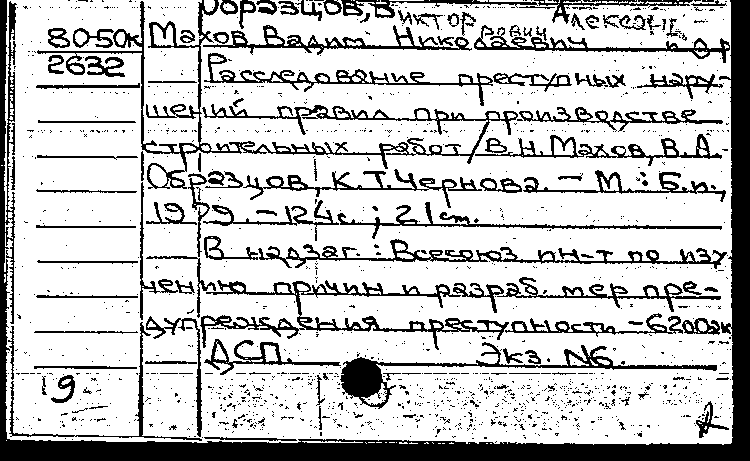 Образцов, Виктор Александ-
рович
80-50к Махов, Вадим Николаевич и др
2632 Расследование преступных нару-
шений правил при производстве
строительных работ / В.Н. Махов, В.А.
Образцов, К.Т. Чернова. – М.: Б.и.,
1979. – 124с.; 21см.
В надзаг.: Всесоюз. ин-т по изу-
чению причин и разраб. мер пре-
дупреждения преступности – 6200эк
ДСП. Экз. N6.
9